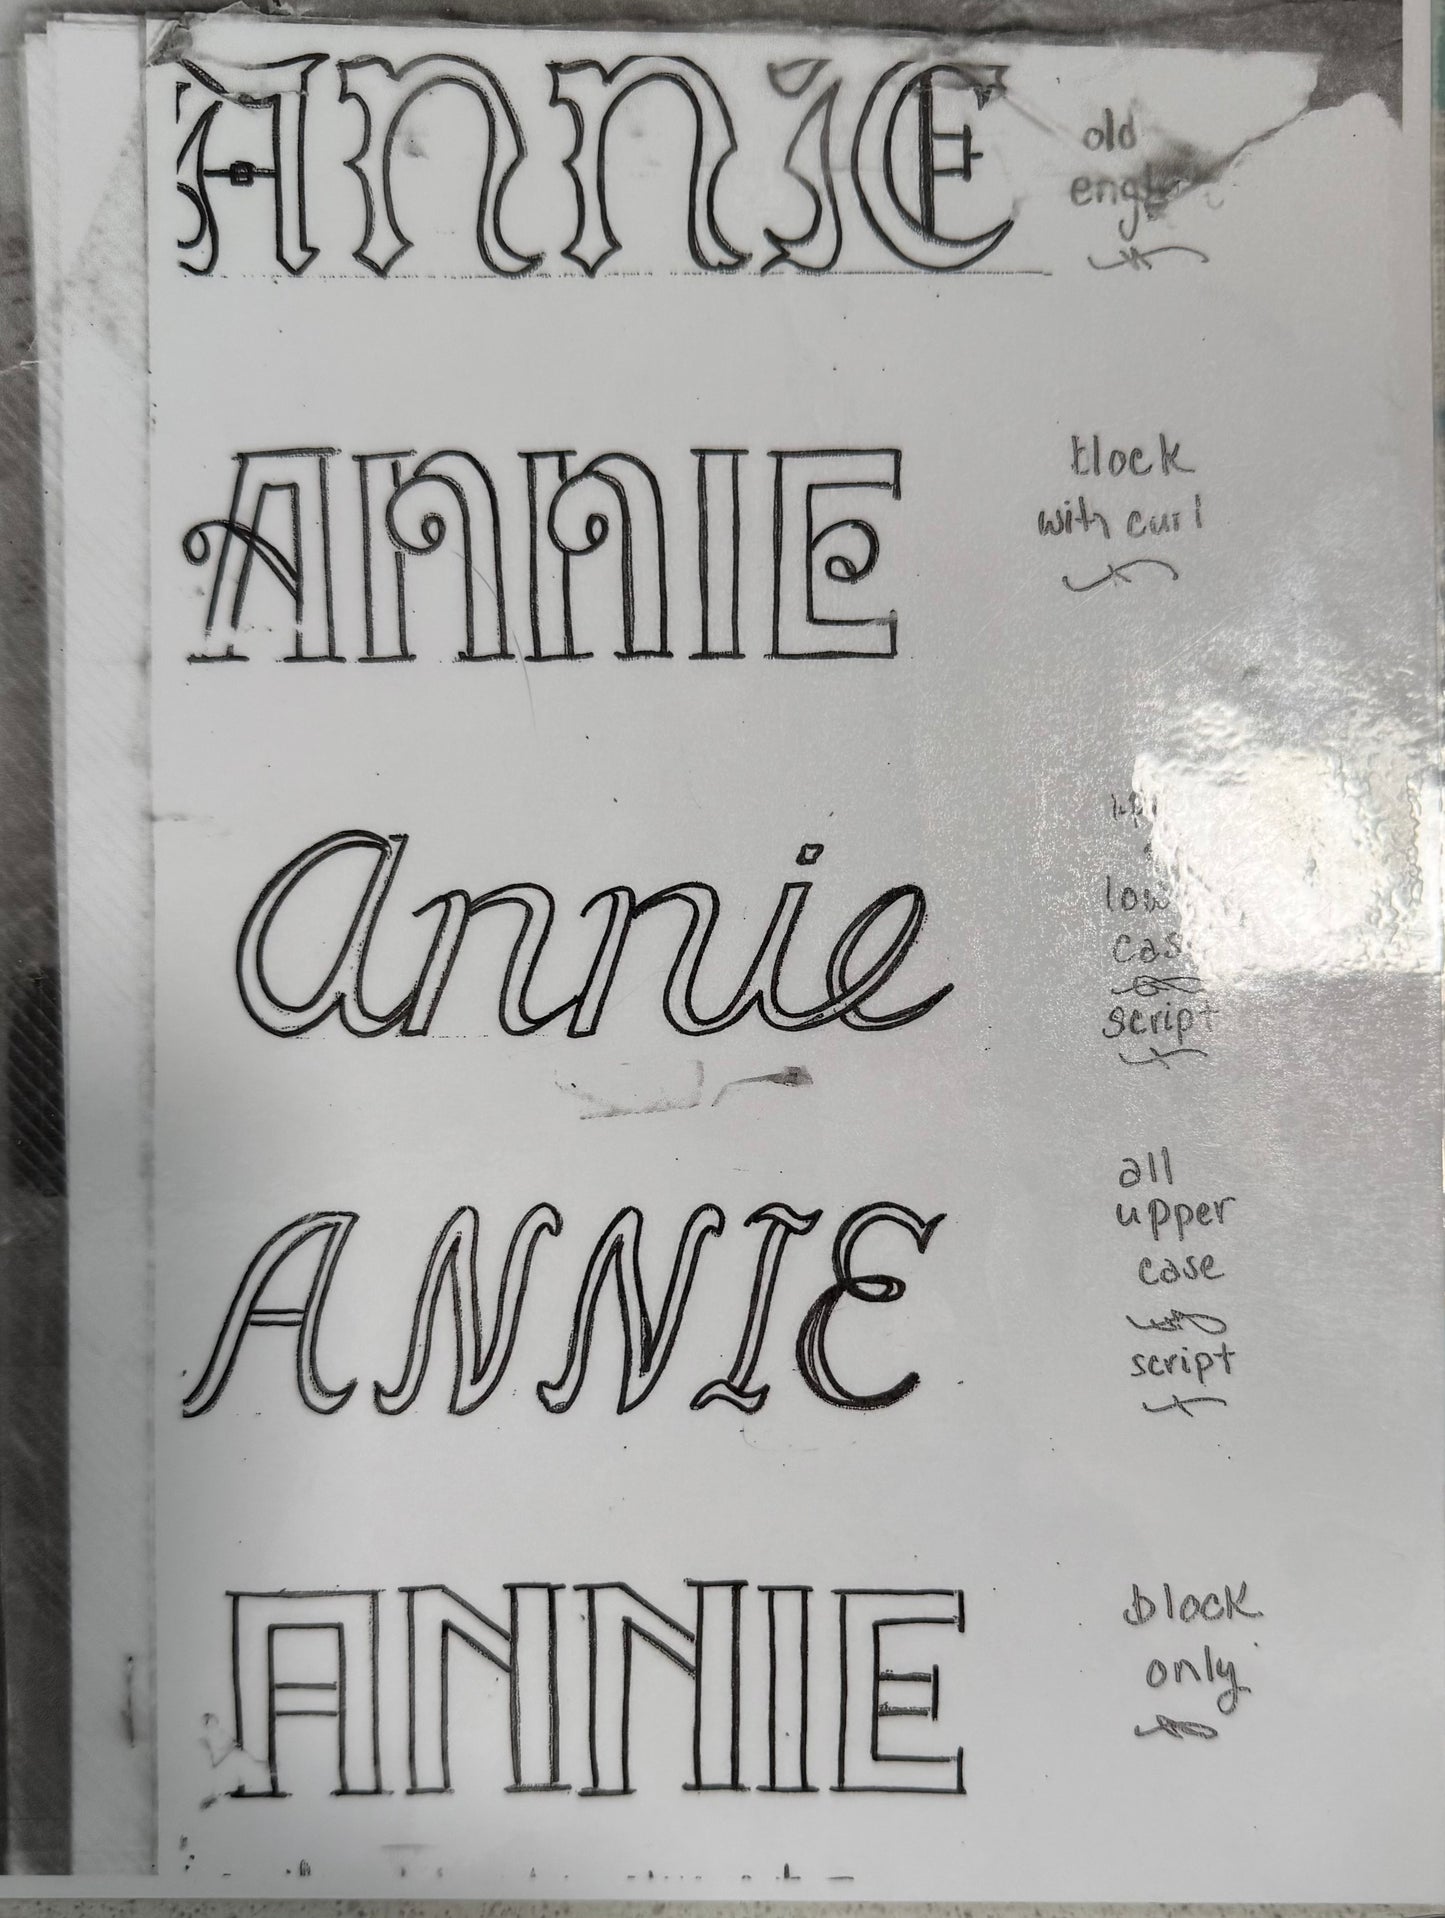 Annie
old
ANNIE
block
with curl
annie
script
ANNIE
all
upper
case
script
ANNIE
block
only